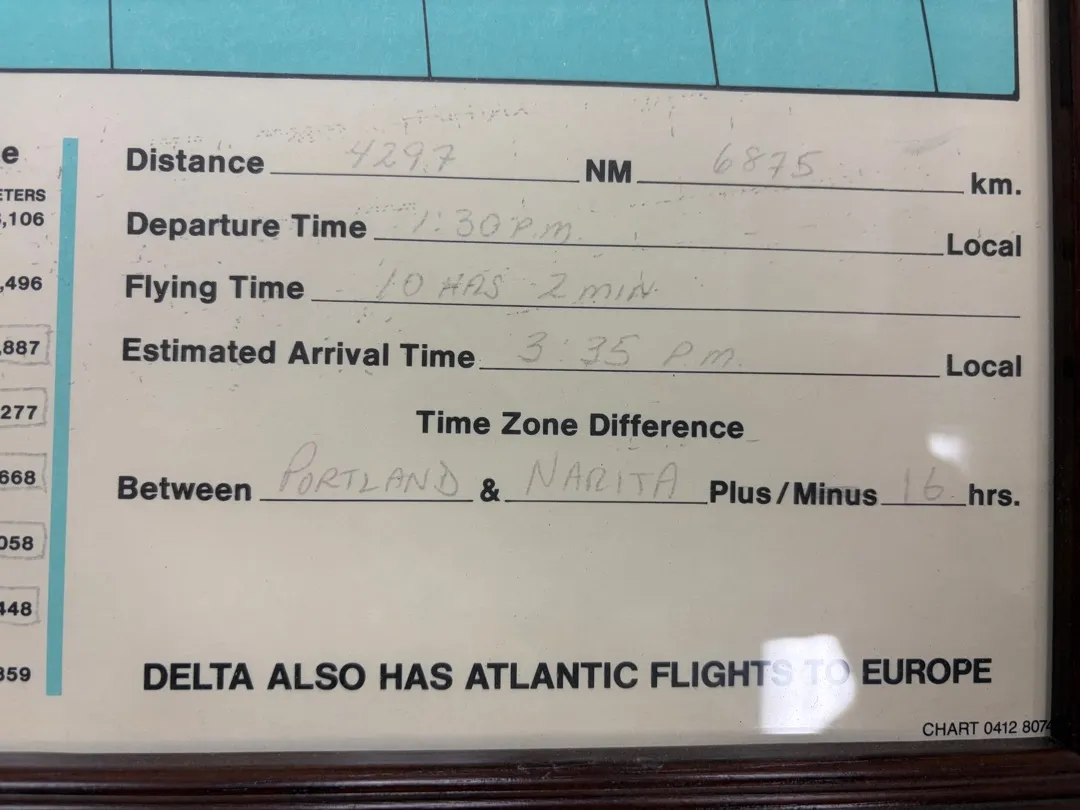 e
ETERS
,106
,496
,887
277
668
058
448
359
Distance 4297 NM 6875 km.
Departure Time 1:30 P.M. Local
Flying Time 10 HRS 2 MIN.
Estimated Arrival Time 3:35 P.M. Local
Time Zone Difference
Between PORTLAND & NARITA Plus/Minus 16 hrs.
DELTA ALSO HAS ATLANTIC FLIGHTS TO EUROPE
CHART 0412 8074